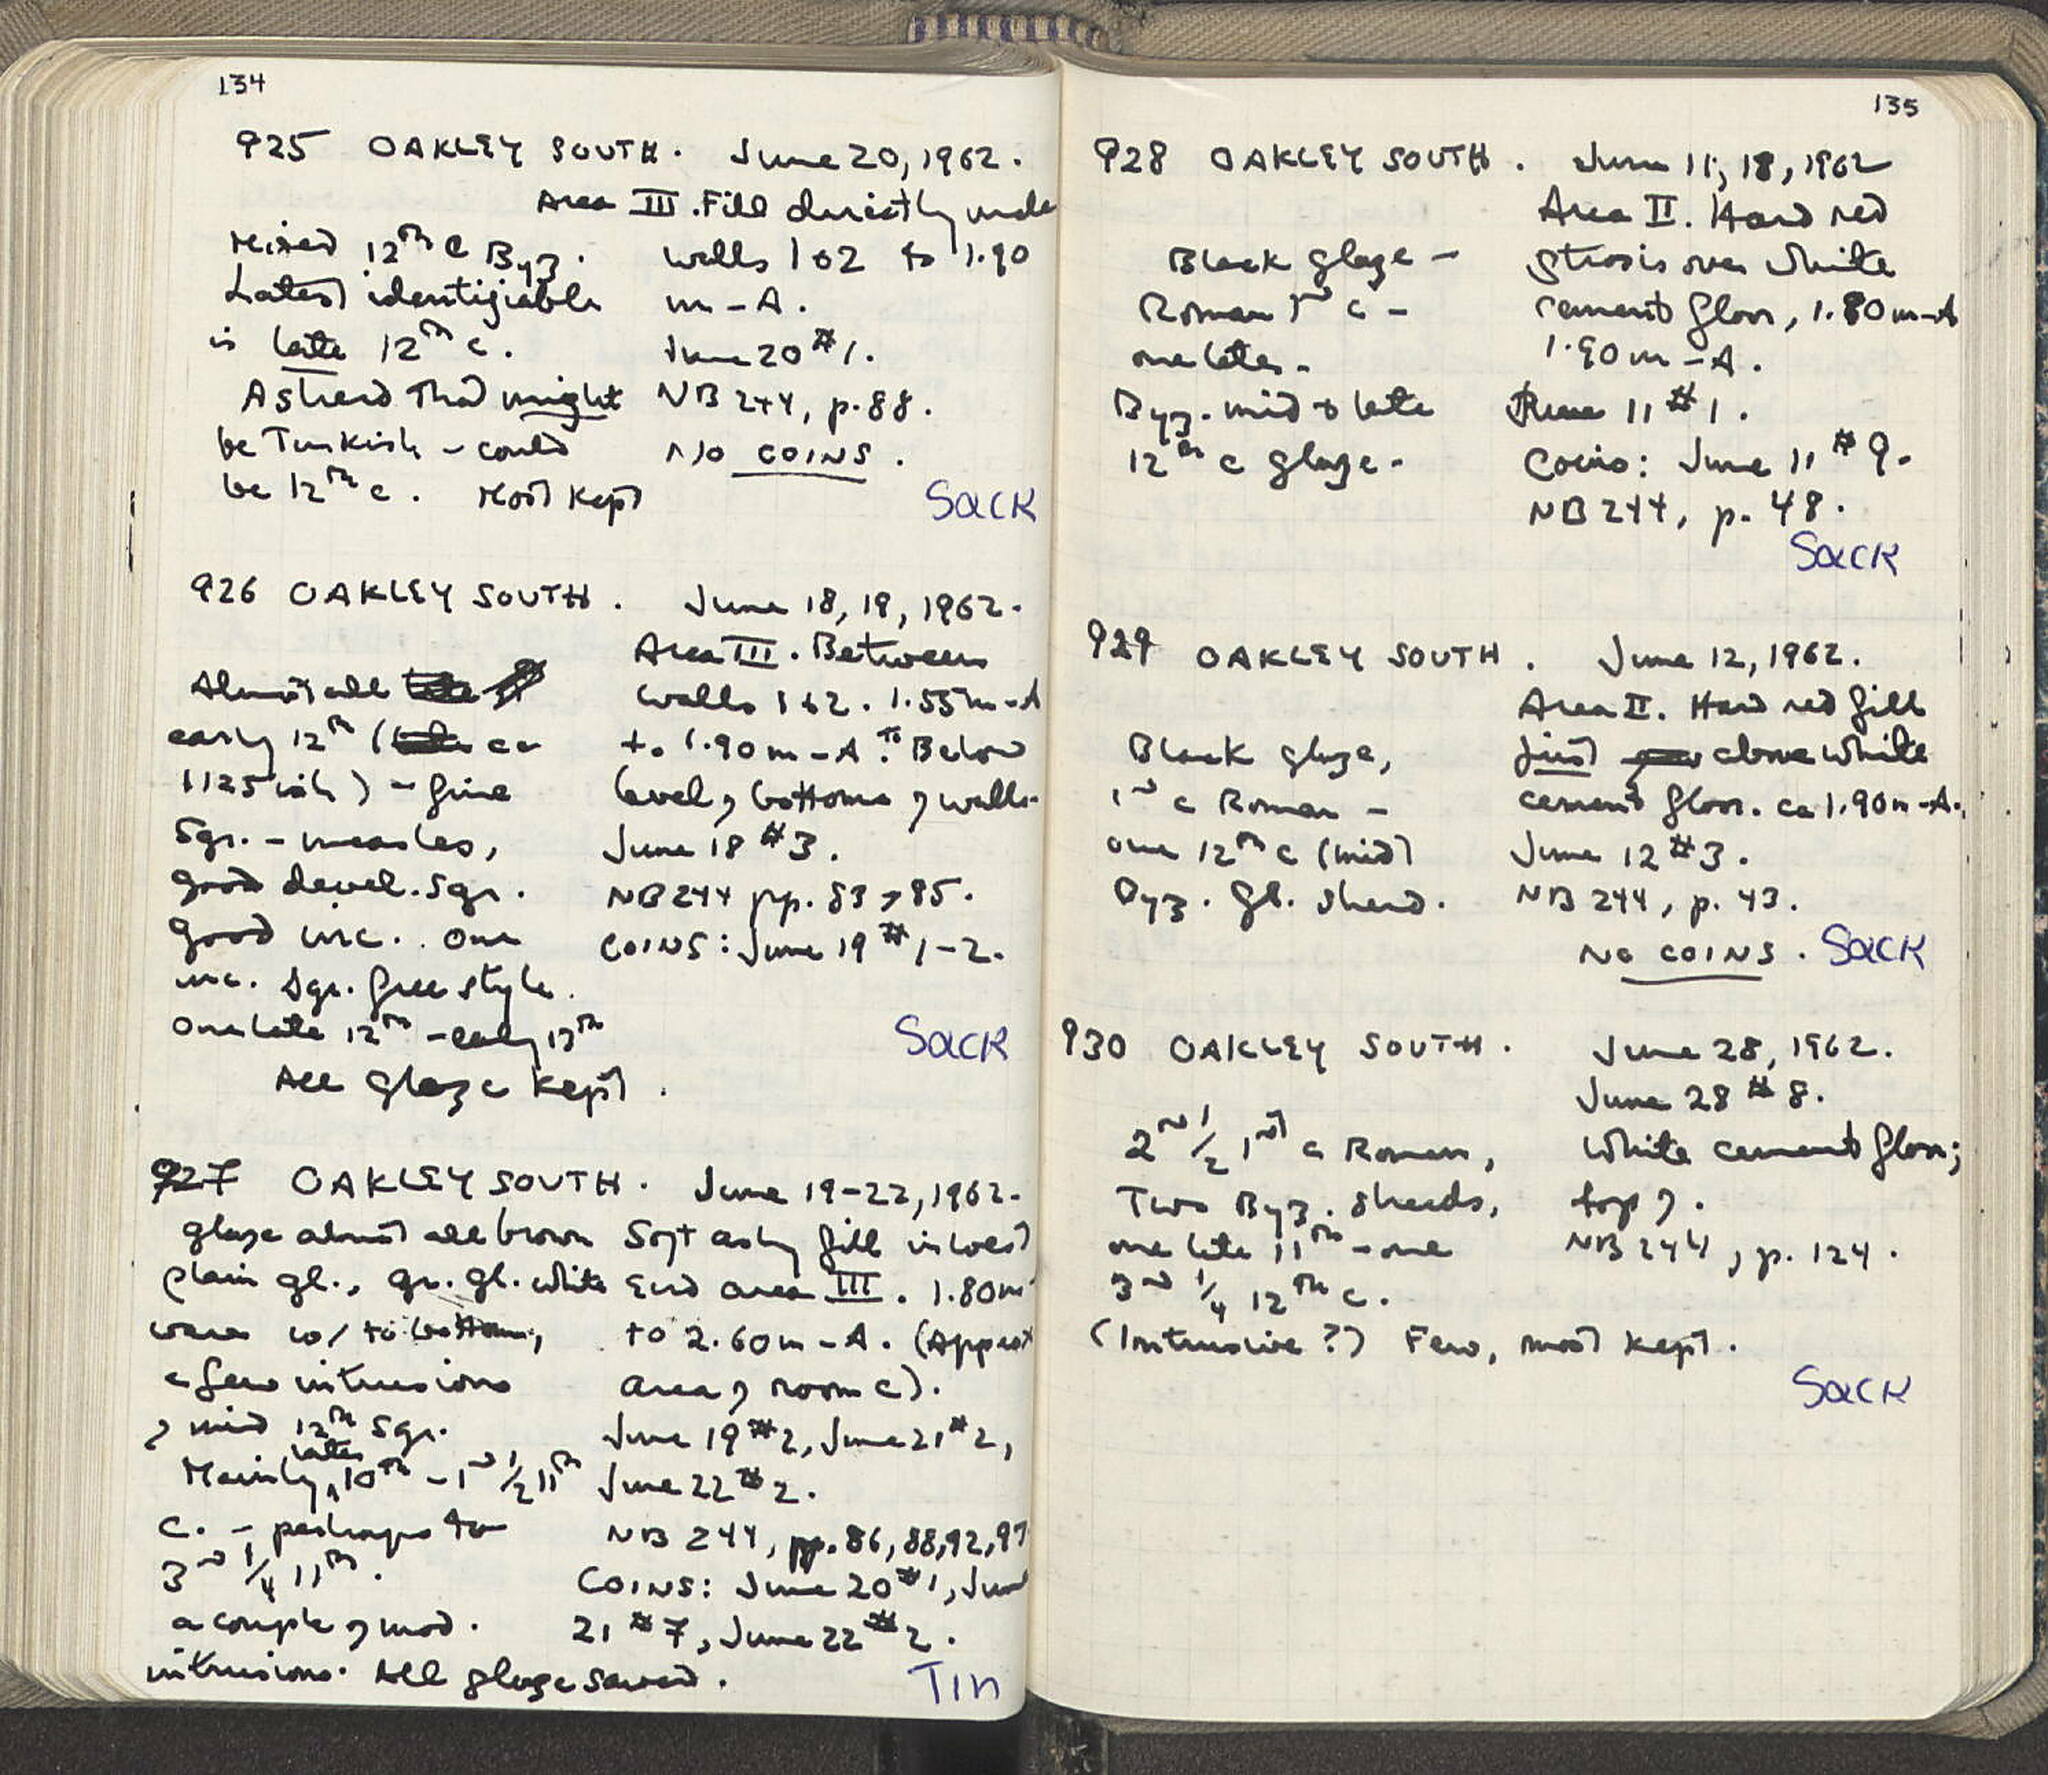 134
925 OAKLEY SOUTH. June 20, 1962.
Area III. Fill directly unde
Mixed 12th C Byz. walls 1 & 2 to 1.90
Latest identifiable m-A.
is late 12th c. June 20 #1.
A sherd that might NB 244, p. 88.
be Turkish - could NO COINS.
be 12th c. Most kept Sack
926 OAKLEY SOUTH. June 18, 19, 1962.
Area III. Between
Almost all walls 1 & 2. 1.55m-A
early 12th ( ca to 1.90m-A. To Below
1125ish) - fine level of bottoms of walls.
Sgr. - measles, June 18 #3.
good devel. sgr. NB 244 pp. 83, 85.
good inc. One COINS: June 19 #1-2.
inc. sgr. free style.
One late 12th - early 13th Sack
All glaze kept.
927 OAKLEY SOUTH. June 19-22, 1962.
glaze almost all brown Soft ashy fill in west
plain gl., gr. gl. white End area III. 1.80m
ware w/ to bottom, to 2.60m-A. (Approx
a few intrusions area of room C).
of mid 12th sgr. June 19 #2, June 21 #2,
Mainly later 10th - 1st 1/2 11th June 22 #2.
c. - perhaps to NB 244, pp. 86, 88, 92, 97
3rd 1/4 11th. COINS: June 20 #1, June
a couple of mod. 21 #7, June 22 #2.
intrusions. All glaze saved. Tin
135
928 OAKLEY SOUTH. June 11, 18, 1962
Area II. Hard red
Black glaze - strosis over white
Roman 1st c - cement floor, 1.80m-A
one late. 1.90m-A.
Byz. mid & late June 11 #1.
12th c glaze. Coins: June 11 #9.
NB 244, p. 48.
Sack
929 OAKLEY SOUTH. June 12, 1962.
Area II. Hard red fill
Black glaze, just above white
1st c Roman - cement floor. ca 1.90m-A.
one 12th c (mid) June 12 #3.
Byz. Gl. sherd. NB 244, p. 43.
NO COINS. Sack
930 OAKLEY SOUTH. June 28, 1962.
June 28 #8.
2nd 1/2 1st c Roman, White cement floor;
Two Byz. sherds, top of.
one late 11th - one NB 244, p. 124.
3rd 1/4 12th c.
(Intrusive?) Few, most kept.
Sack